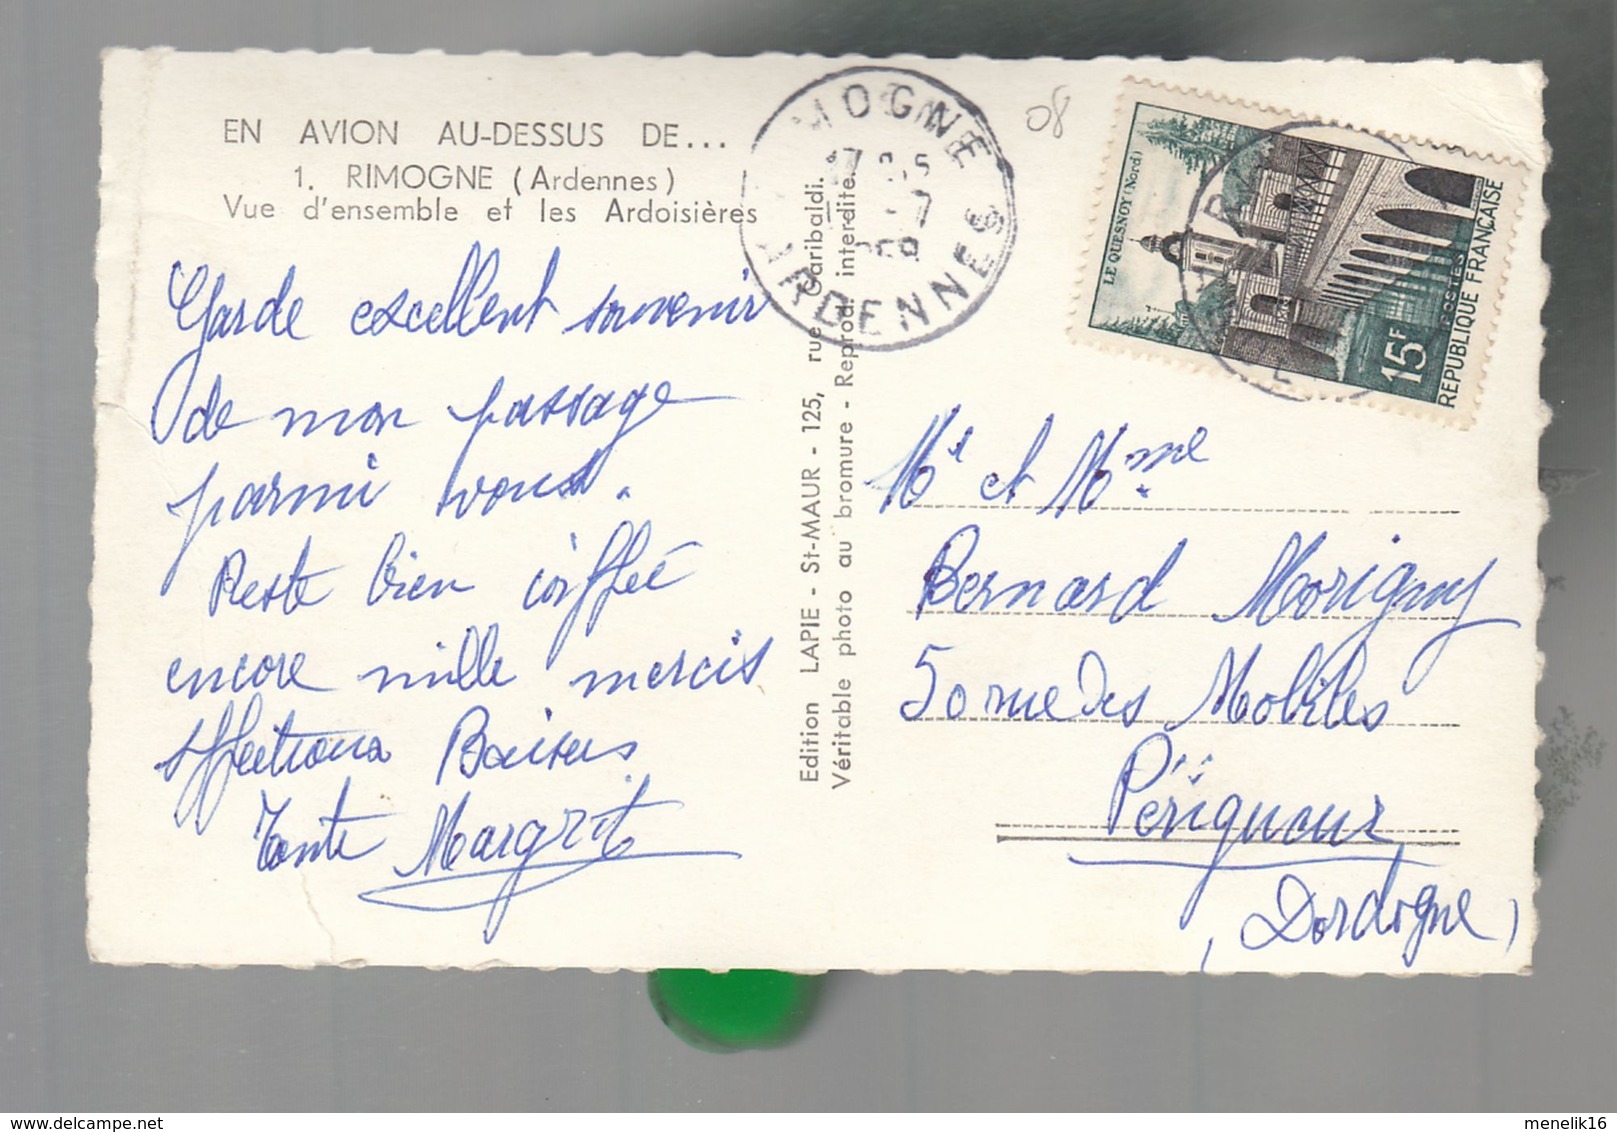 EN AVION AU-DESSUS DE...
1. RIMOGNE (Ardennes)
Vue d'ensemble et les Ardoisières
Garde excellent souvenir
de mon passage
parmi vous.
Reste bien coiffée
encore mille mercis
Affectionx Baisers
Tante Margrit
Edition LAPIE - St-MAUR - 125, rue Garibaldi.
Véritable photo au bromure - Reprod. interdite.
MOGNE
ARDENNES
08
LE QUESNOY (Nord)
15F
POSTES
REPUBLIQUE FRANÇAISE
Mr et Mme
Bernard Morigny
50 rue des Mobiles
Périgueux
(Dordogne)
menelik16